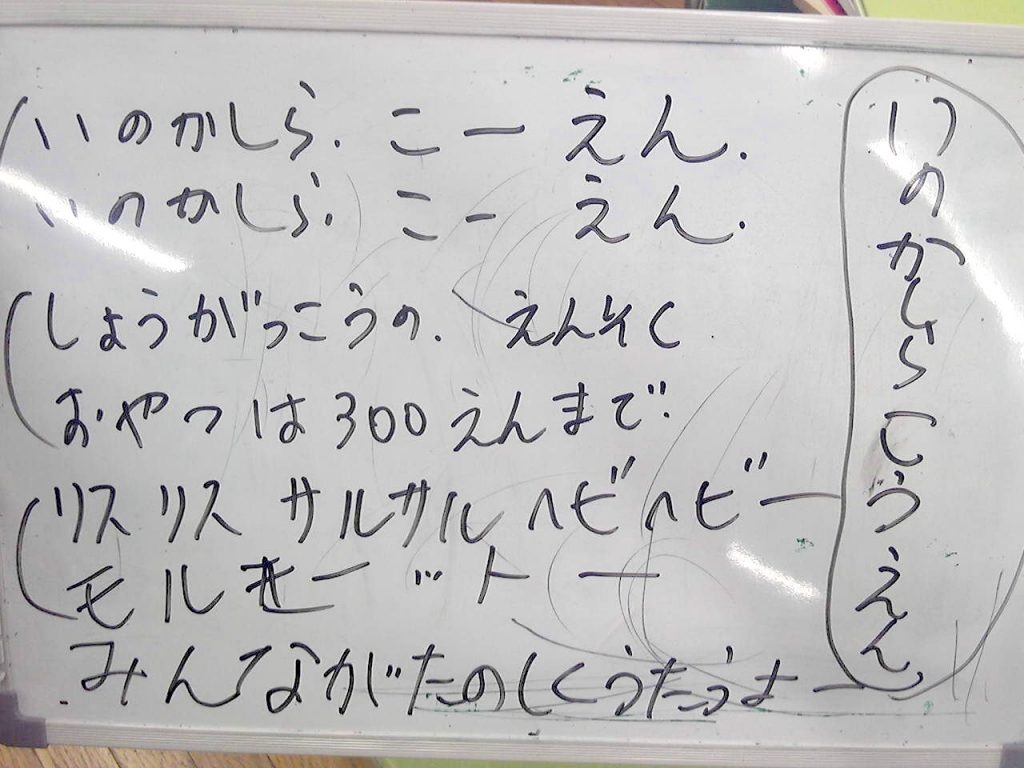 いのかしら.こーえん.
いのかしら.こーえん.
しょうがっこうの.えんそく
おやつは300えんまで.
リスリスサルサルヘビヘビー
モルモーットー
みんながたのしくうたうよー
いのかしらこうえん